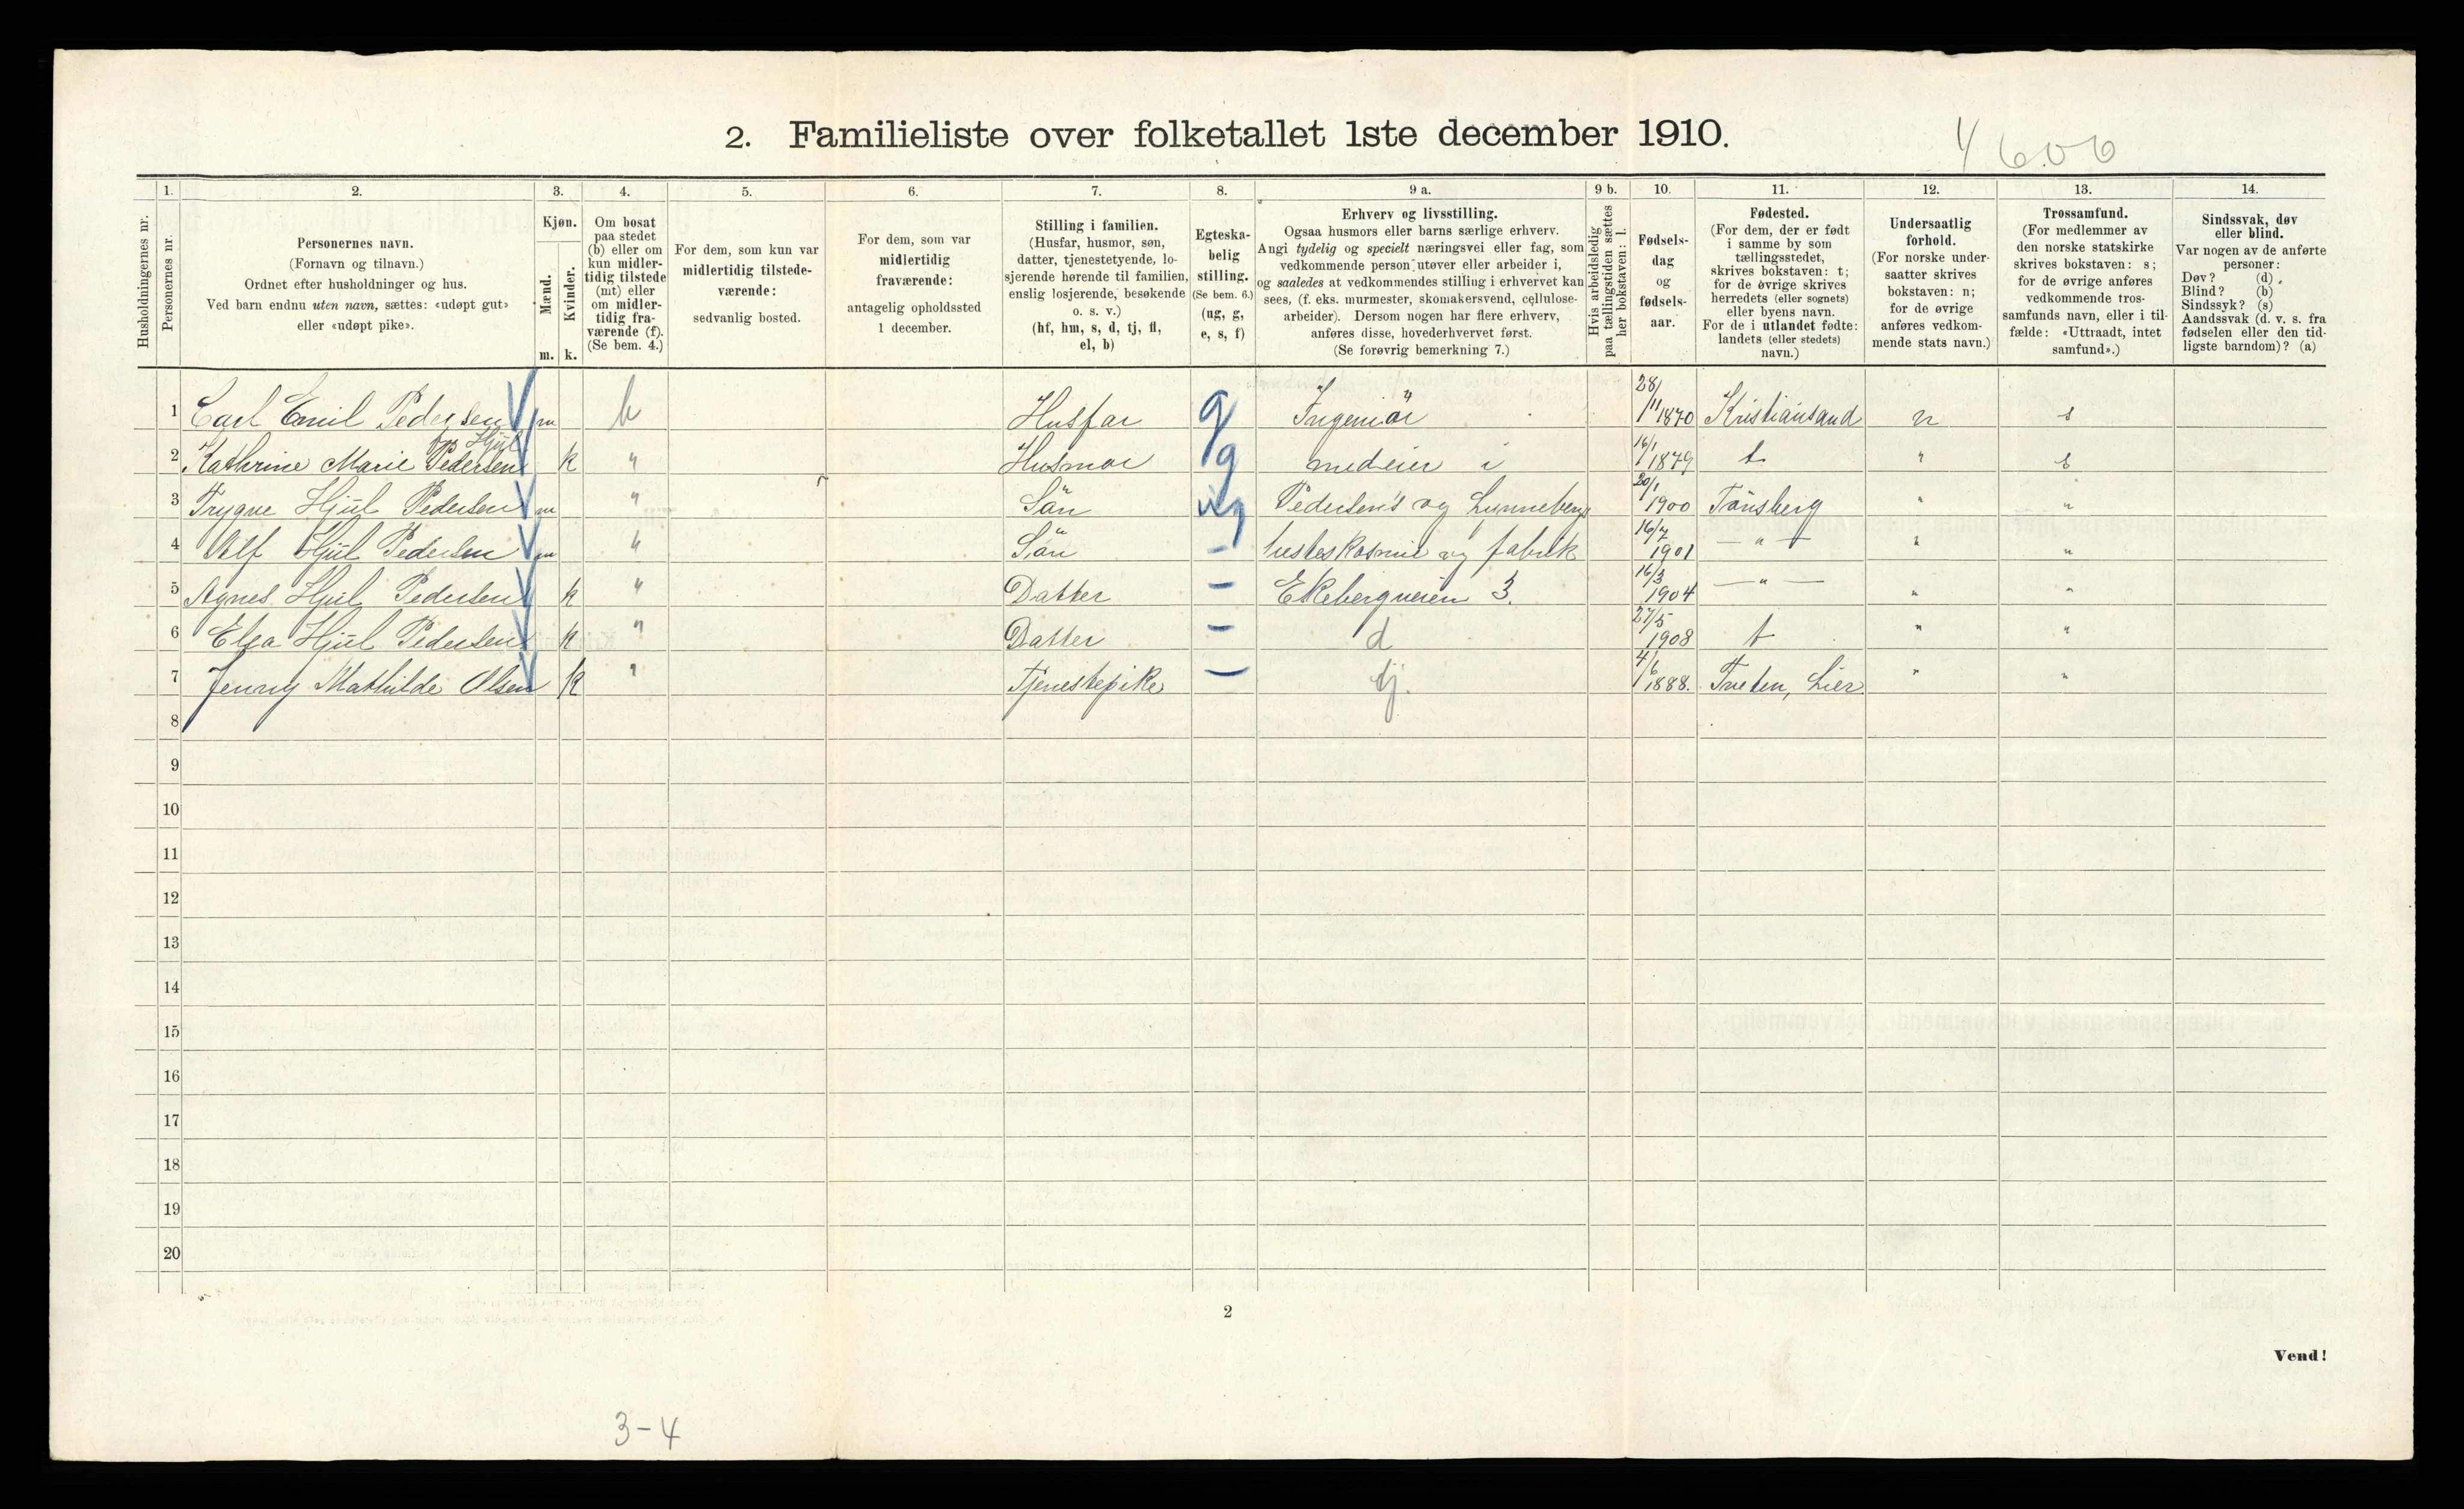 2. Familieliste over folketallet 1ste december 1910.
4 6.06
Husholdningernes nr.
1.
Personernes nr.
2.
Personernes navn.
(Fornavn og tilnavn.)
Ordnet efter husholdninger og hus.
Ved barn endnu uten navn, sættes: «udøpt gut»
eller «udøpt pike».
3.
Kjøn.
Mænd.
Kvinder.
m. k.
4.
Om bosat
paa stedet
(b) eller om
kun midler-
tidig tilstede
(mt) eller
om midler-
tidig fra-
værende (f).
(Se bem. 4.)
5.
For dem, som kun var
midlertidig tilstede-
værende:
sedvanlig bosted.
6.
For dem, som var
midlertidig
fraværende:
antagelig opholdssted
1 december.
7.
Stilling i familien.
(Husfar, husmor, søn,
datter, tjenestetyende, lo-
sjerende hørende til familien,
enslig losjerende, besøkende
o. s. v.)
(hf, hm, s, d, tj, fl,
el, b)
8.
Egteska-
belig
stilling.
(Se bem. 6.)
(ug, g,
e, s, f)
9 a.
Erhverv og livsstilling.
Ogsaa husmors eller barns særlige erhverv.
Angi tydelig og specielt næringsvei eller fag, som
vedkommende person utøver eller arbeider i,
og saaledes at vedkommendes stilling i erhvervet kan
sees, (f. eks. murmester, skomakersvend, cellulose-
arbeider). Dersom nogen har flere erhverv,
anføres disse, hovederhvervet først.
(Se forøvrig bemerkning 7.)
9 b.
Hvis arbeidsledig
paa tællingstiden sættes
her bokstaven: l.
10.
Fødsels-
dag
og
fødsels-
aar.
11.
Fødested.
(For dem, der er født
i samme by som
tællingsstedet,
skrives bokstaven: t;
for de øvrige skrives
herredets (eller sognets)
eller byens navn.
For de i utlandet fødte:
landets (eller stedets)
navn.)
12.
Undersaatlig
forhold.
(For norske under-
saatter skrives
bokstaven: n;
for de øvrige
anføres vedkom-
mende stats navn.)
13.
Trossamfund.
(For medlemmer av
den norske statskirke
skrives bokstaven: s;
for de øvrige anføres
vedkommende tros-
samfunds navn, eller i til-
fælde: «Uttraadt, intet
samfund».)
14.
Sindssvak, døv
eller blind.
Var nogen av de anførte
personer:
Døv? (d)
Blind? (b)
Sindssyk? (s)
Aandssvak (d. v. s. fra
fødselen eller den tid-
ligste barndom)? (a)
1 Carl Emil Pedersen m b Husfar g Ingeniör 28/11 1870 Kristiansand n s
Hjul
2 Kathrine Marie Pedersen k " Husmor g medeier i 16/1 1879 t " s
3 Trygve Hjul Pedersen m " Sön ug Pedersen's og Lunneberg 20/1 1900 Tönsberg " "
4 Alf Hjul Pedersen m " Sön - og fabrik 16/7 1901 — " — " "
5 Agnes Hjul Pedersen k " Datter - Ekebergveien 3. 16/3 1904 — " — " "
6 Elsa Hjul Pedersen k " Datter - d 27/5 1908 t " "
7 Jenny Mathilde Olsen k " Tjenestepike - tj. 4/6 1888. Tveten, Lier " "
8
9
10
11
12
13
14
15
16
17
18
19
20
2
Vend!
3-4